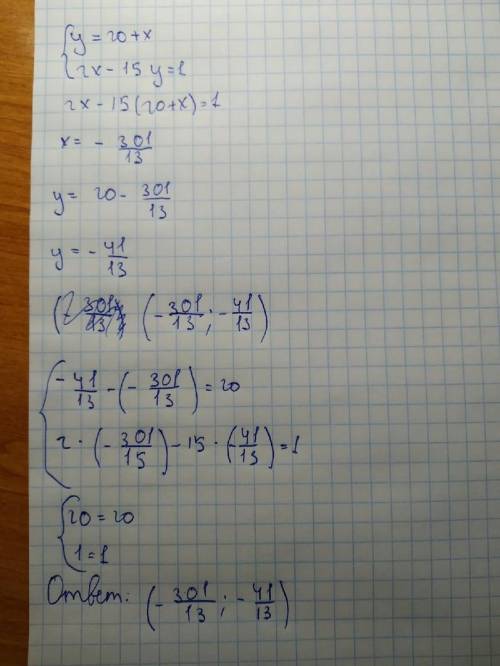 {y = 20+x
{2x - 15y = 1
2x - 15(20+x) = 1
x = - 301/13
y = 20 - 301/13
y = - 41/13
(- 301/13; - 41/13)
{- 41/13 - (- 301/13) = 20
{2 · (- 301/15) - 15 · (- 41/13) = 1
{20 = 20
{1 = 1
Ответ: (- 301/13; - 41/13)